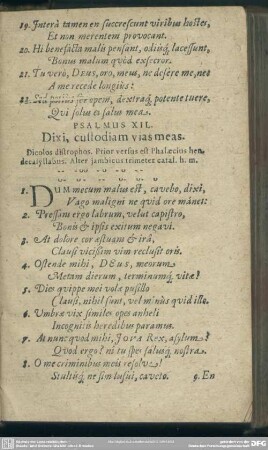 19. Interà tamen en succrescunt viribus hostes,
Et non merentem provocant.
20. Hi benefacta malis pensant, odiisq́; lacessunt,
Bonum malum quòd exsecror.
21. Tu verò, Deus, mo, meus, ne desere me, nec
A me recede longius:
22. Sed potius fer opem, dextraq́; potente tuere,
Qui solus es salus mea.
PSALMUS XII.
Dixi, custodiam vias meas.
Dicolos distrophos. Prior versus est Phalæcius hen-
decasyllabus. Alter jambicus trimeter catal. h. m.
1. DUM mecum malus est, cavebo, dixi,
Vago maligni ne quid ore mànet:
2. Pressam ergo labrum, velut capistro,
Bonis & ipsis exitum negavi.
3. At dolore cor æstuans & irâ,
Clausi vicissim vim reclusit oris.
4. Ostende mihi, Deus, meorum
Metam dierum, terminumq́; vitæ?
5. Dies quippe mei volæ pusillo
Clausi, nihil sunt, vel minùs quid illo.
6. Umbræ vix similes opes anheli
Incognitis heredibus paramus.
7. At nunc quod mihi, Jova Rex, asylum?
Quod ergo? ni tu spes salusq́; nostra.
8. O me criminibus meis resolve!
Stultisq́; ne sim lusui, caveto.
9. En